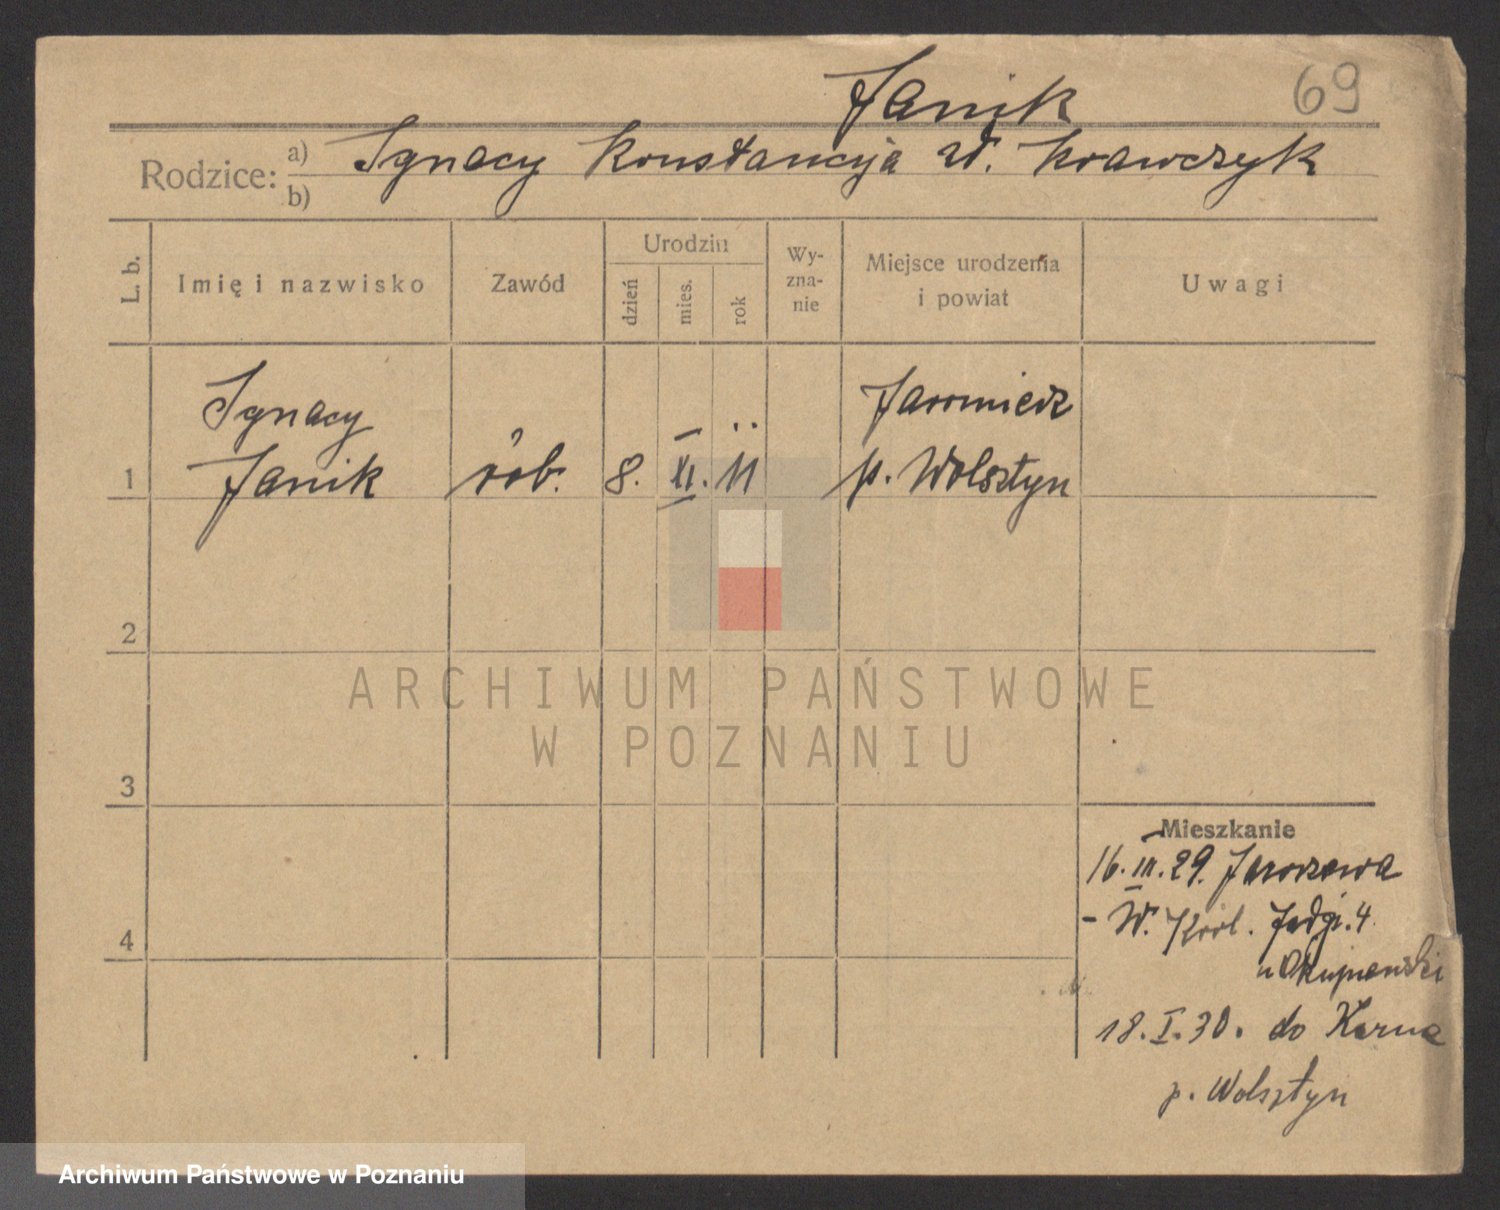 Janik
69
Rodzice: a) Ignacy Konstancya z d. Krawczyk
b)
L. b.
Imię i nazwisko
Zawód
Urodzin
dzień
mies.
rok
Wy-
zna-
nie
Miejsce urodzenia
i powiat
Uwagi
1
Ignacy
Janik
rob.
8.
XI.
11
Jaromierz
p. Wolsztyn
2
3
4
Mieszkanie
16. III. 29.
- W. Król. Jadgi. 4
u
18. I. 30. do Karna
p. Wolsztyn
ARCHIWUM PAŃSTWOWE
W POZNANIU
Archiwum Państwowe w Poznaniu